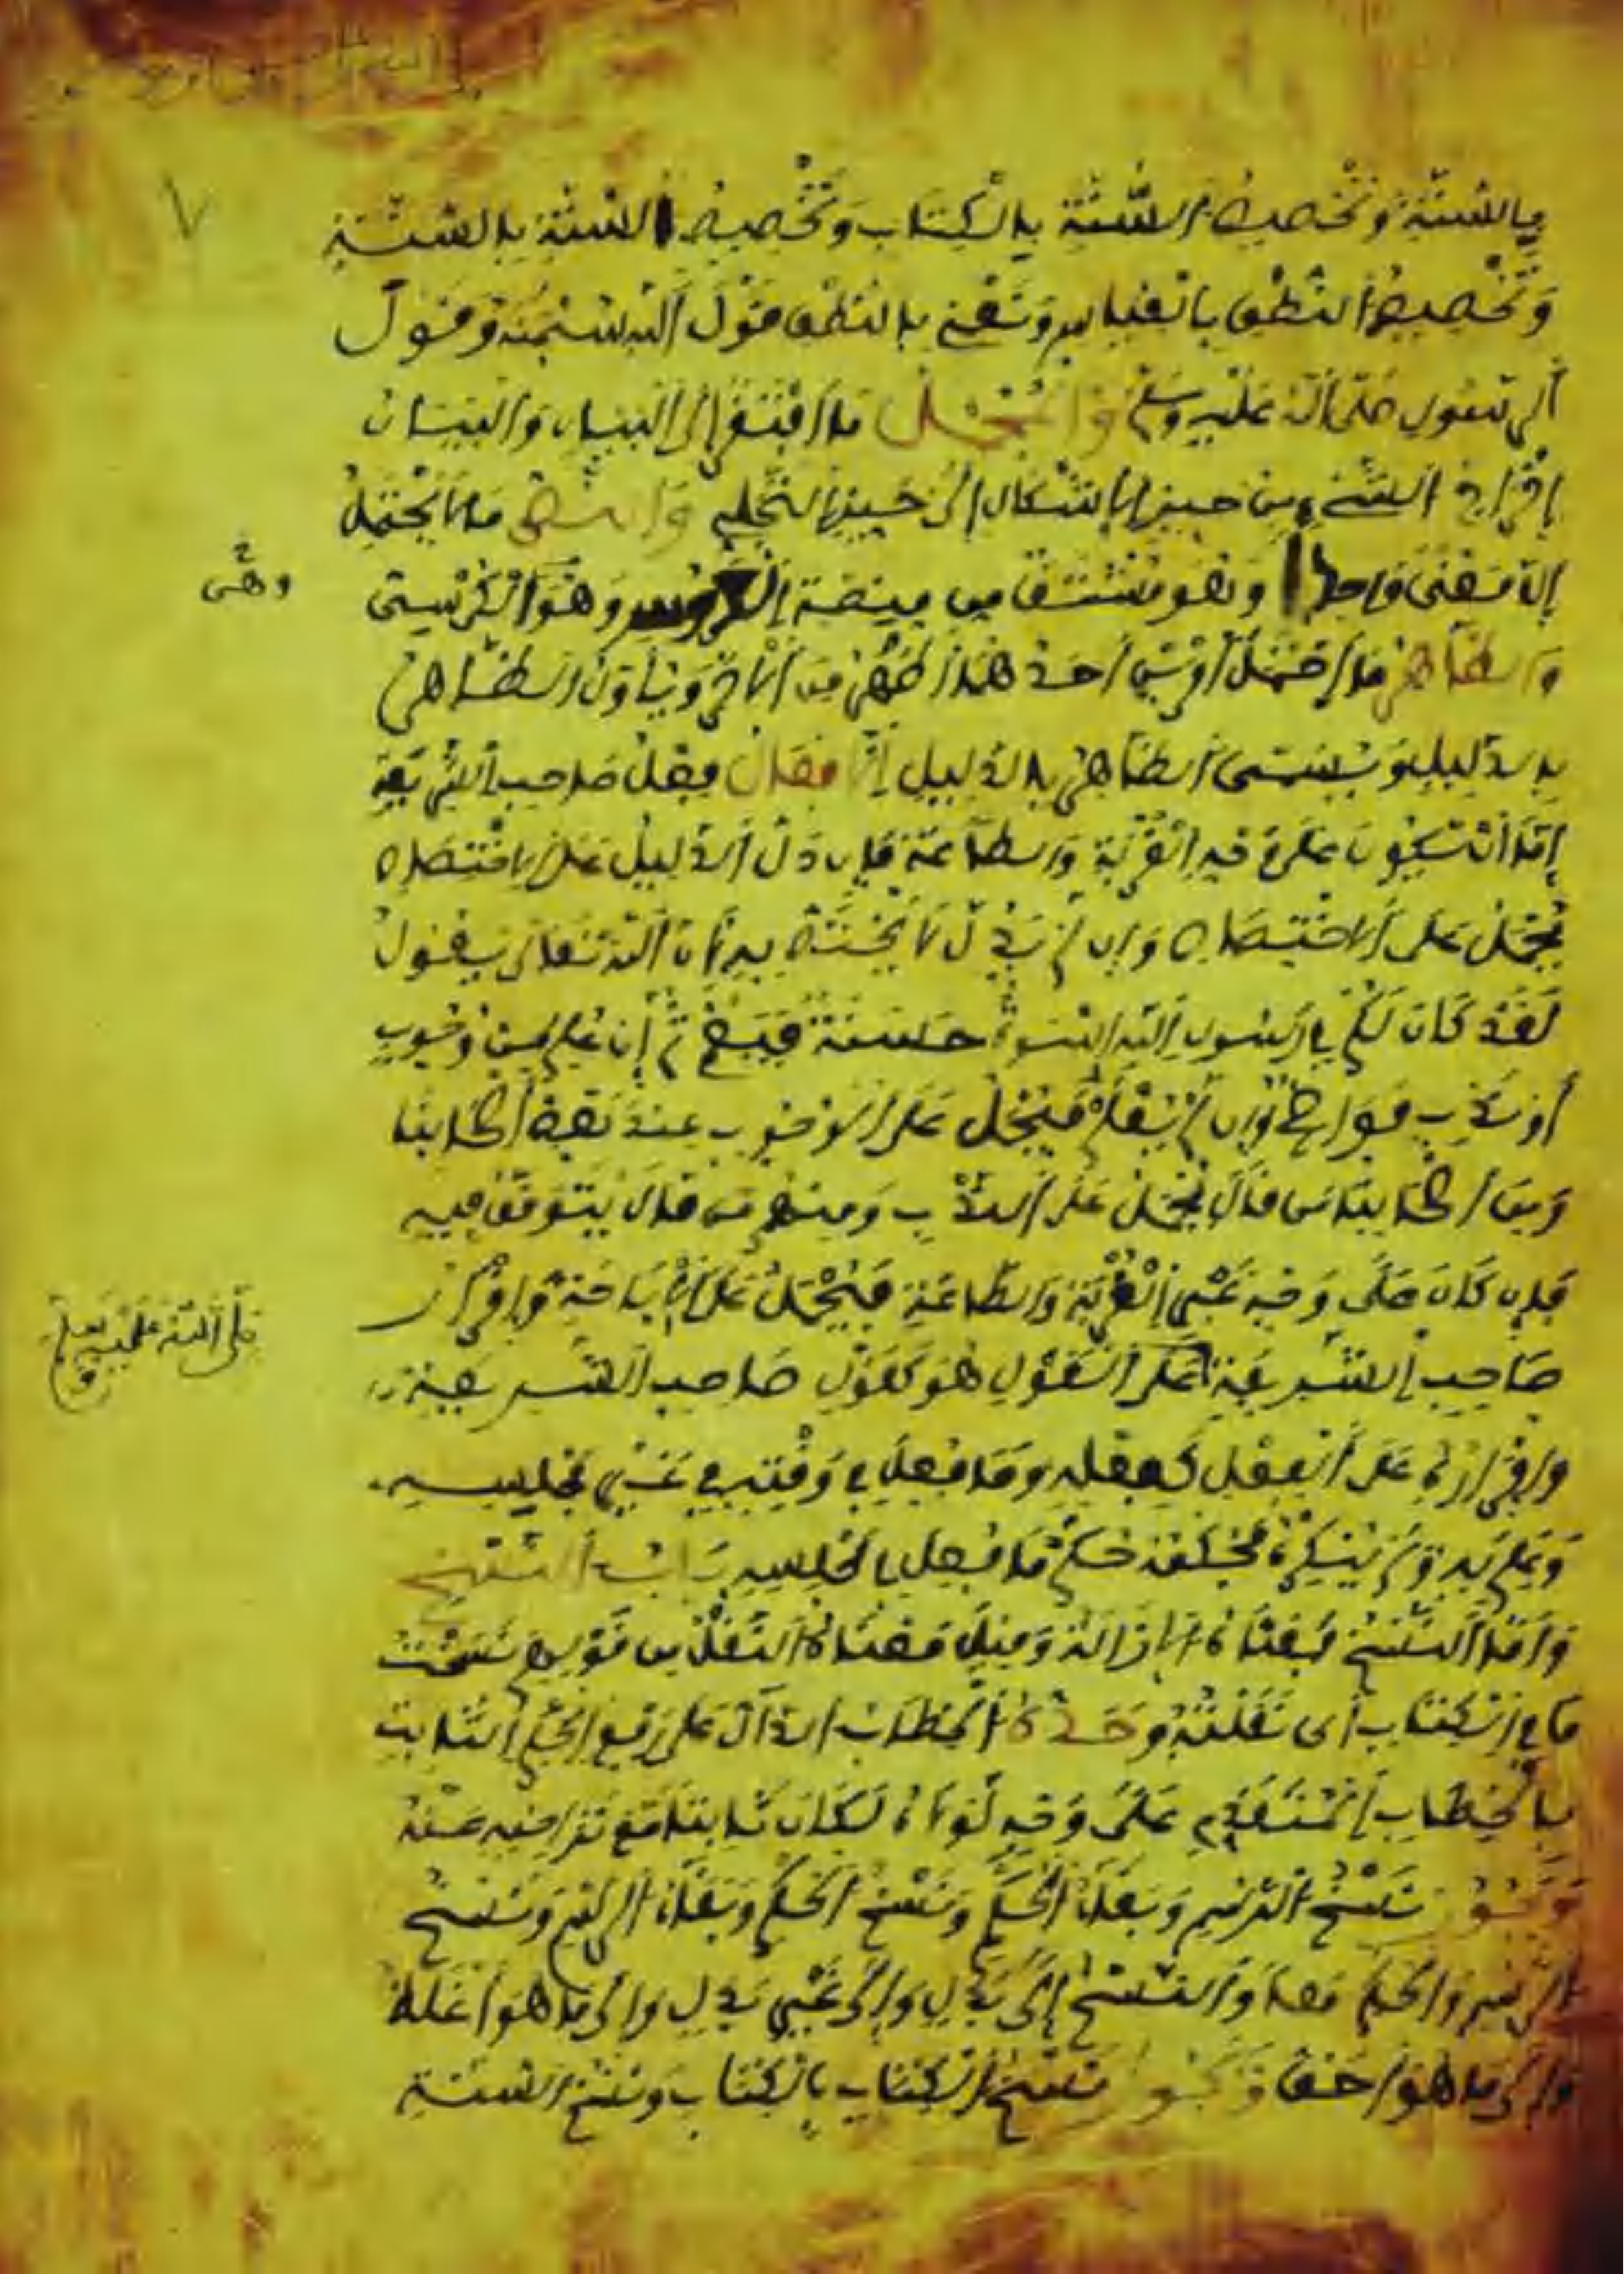 ٧
بالسنة وتخصيص السنة بالكتاب وتخصيص السنة بالسنة
وتخصيص النطق بالقياس ونعني بالنطق قول الله سبحنه وقول
الرسول صلى الله عليه وسلم والمجمل ما افتقر إلى البيان والبيان
إخراج الشيء من حيز الإشكال إلى حيز التجلي والنص ما لا يحتمل
إلا معنى واحدا وهو مشتق من منصة العروس وهو الكرسي
وهي
والظاهر ما احتمل أمرين أحدهما أظهر من الآخر ويتأول الظاهر
بالدليل ويسمى الظاهر بالدليل الأفعال فعل صاحب الشريعة
إما أن تكون على وجه القربة والطاعة فإن دل الدليل على الاختصاص
يحمل على الاختصاص وإن لم يدل لا يختص به لأن الله تعالى يقول
لقد كان لكم في رسول الله إسوة حسنة ثم إن علم من وجوب
أو ندب فواضح وإن لم يعلم فيحمل على الوجوب عند بعض أصحابنا
ومن أصحابنا من قال يحمل على الندب ومنهم من قال يتوقف فيه
فإن كان على وجه غير القربة والطاعة فيحمل على الإباحة وإقرار
صاحب الشريعة على القول هو كقول صاحب الشريعة
صلى الله عليه وسلم
وإقراره على الفعل كفعله وما فعل في وقته في غير مجلسه
وعلم به ولم ينكره فحكمه حكم ما فعل في مجلسه باب النسخ
وأما النسخ فمعناه الإزالة وقيل معناه النقل من قولهم نسخت
ما في الكتاب أي نقلته وحده الخطاب الدال على رفع الحكم الثابت
بالخطاب المتقدم على وجه لولاه لكان ثابتا مع تراخيه عنه
ويجوز نسخ الرسم وبقاء الحكم ونسخ الحكم وبقاء الرسم ونسخ
الرسم والحكم معا والنسخ إلى بدل وإلى غير بدل وإلى ما هو أغلظ
وإلى ما هو أخف ويجوز نسخ الكتاب بالكتاب ونسخ السنة